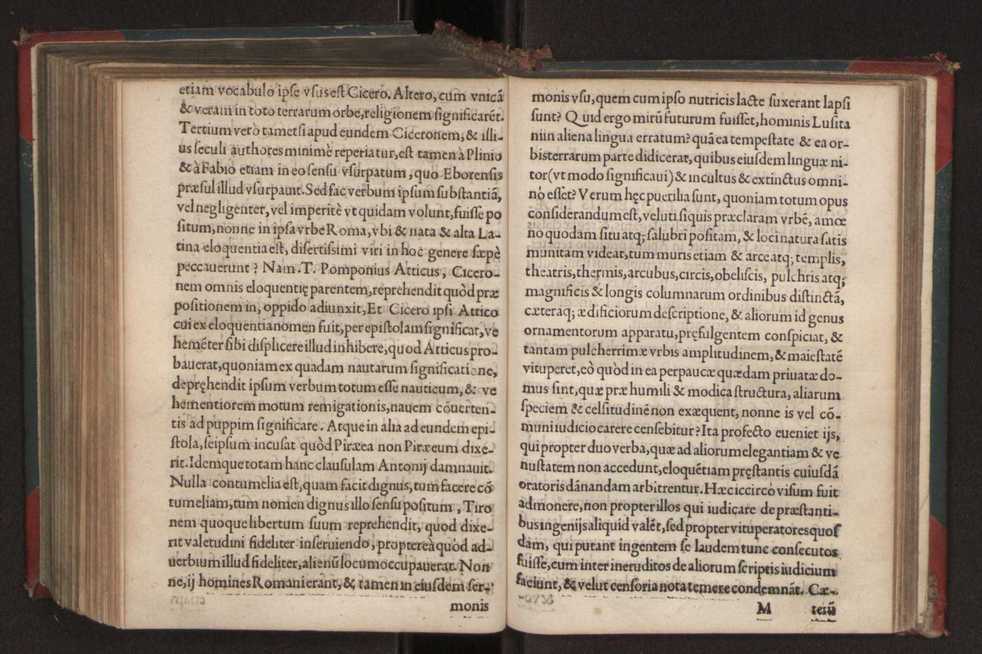 etiam vocabulo ipse vsus est Cicero. Altero, cum vnicā
& veram in toto terrarum orbe, religionem significarēt.
Tertium verò tametsi apud eundem Ciceronem, & illi-
us seculi authores minimè reperiatur, est tamen à Plinio
& à Fabio etiam in eo sensu vsurpatum, quo Eborensis
præsul illud vsurpauit. Sed fac verbum ipsum substantiā,
vel negligenter, vel imperitè vt quidam volunt, fuisse po
situm, nonne in ipsa vrbe Roma, vbi & nata & alta La-
tina eloquentia est, disertissimi viri in hoc genere sæpè
peccauerunt? Nam. T. Pomponius Atticus, Cicero-
nem omnis eloquentię parentem, reprehendit quòd præ
positionem in, oppido adiunxit, Et Cicero ipsi Attico
cui ex eloquentia nomen fuit, per epistolam significat, ve
hemēter sibi displicere illud inhibere, quod Atticus pro-
bauerat, quoniam ex quadam nautarum significatione,
depręhendit ipsum verbum totum esse nauticum, & ve
hementiorem motum remigationis, nauem cōuerten-
tis ad puppim significare. Atque in alia ad eundem epi-
stola, seipsum incusat quòd Piræea non Piræeum dixe-
rit. Idemque totam hanc clausulam Antonij damnauit.
Nulla contumelia est, quam facit dignus, tum facere cō
tumeliam, tum nomen dignus illo sensu positum, Tiro
nem quoque libertum suum reprehendit, quod dixe-
rit valetudini fideliter inseruiendo, proptereà quòd ad-
uerbium illud fideliter, alienū locum occupauerat. Non
ne, ij homines Romani erānt, & tamen in eiusdem ser-
monis
monis vsu, quem cum ipso nutricis lacte suxerant lapsi
sunt? Quid ergo mirū futurum fuisset, hominis Lusita
ni in aliena lingua erratum? quā ea tempestate & ea or-
bis terrarum parte didicerat, quibus eiusdem linguæ ni-
tor (vt modo significaui) & incultus & extinctus omni-
nò esset? Verum hęc puerilia sunt, quoniam totum opus
considerandum est, veluti si quis præclaram vrbē, amœ
no quodam situ atq; salubri positam, & loci natura satis
munitam videat, tum muris etiam & arce atq; templis,
theatris, thermis, arcubus, circis, obeliscis, pulchris atq;
magnificis & longis columnarum ordinibus distinctā,
cæteraq; ædificiorum descriptione, & aliorum id genus
ornamentorum apparatu, pręfulgentem conspiciat, &
tantam pulcherrimæ vrbis amplitudinem, & maiestatē
vituperet, eò quòd in ea perpaucæ quædam priuatæ do-
mus sint, quæ præ humili & modica structura, aliarum
speciem & celsitudinē non exæquent, nonne is vel cō-
muni iudicio carere censebitur? Ita profecto eueniet ijs,
qui propter duo verba, quæ ad aliorum elegantiam & ve
nustatem non accedunt, eloquētiam pręstantis cuiusdā
oratoris dānandam arbitrentur. Hæc iccircò visum fuit
admonere, non propter illos qui iudicare de præstanti-
bus ingenijs aliquid valēt, sed propter vituperatores quos
dam, qui putant ingentem se laudem tunc consecutos
fuisse, cum inter ineruditos de aliorum scriptis iudicium
faciunt, & velut censoria nota temere condemnāt. Cæ-
M terū